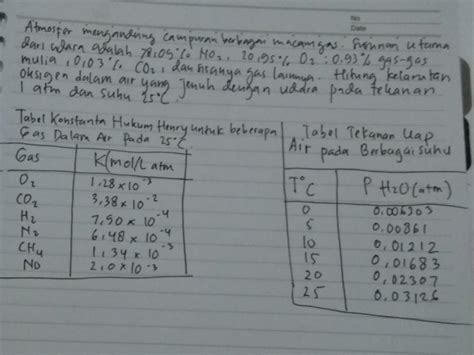 No
Date
Atmosfer mengandung campuran berbagai macam gas. Susunan utama
dari udara adalah 78,09% NO2, 20,95% O2, 0,93% gas-gas
mulia, 0,03% CO2, dan sisanya gas lainnya. Hitung kelarutan
oksigen dalam air yang jenuh dengan udara pada tekanan
1 atm dan suhu 25°C
Tabel Konstanta Hukum Henry untuk beberapa
Gas Dalam Air Pada 25°C
Gas K(mol/L atm
O2 1,28 x 10-3
CO2 3,38 x 10-2
H2 7,90 x 10-4
N2 6,48 x 10-4
CH4 1,34 x 10-3
NO 2,0 x 10-3
Tabel Tekanan Uap
Air pada Berbagai suhu
T°C P H2O (atm)
0 0,006303
5 0,00861
10 0,01212
15 0,01683
20 0,02307
25 0,03126